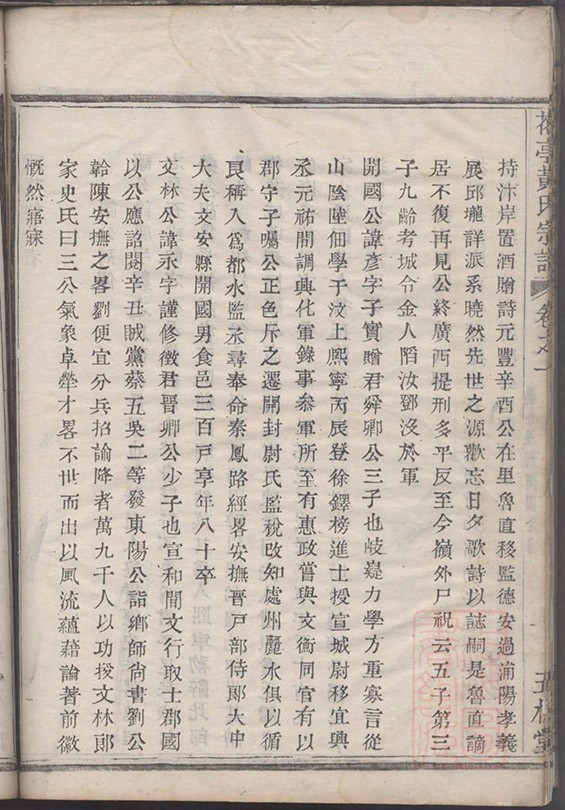 持汴岸置酒贈詩元豐辛酉公在里魯直移監德安過浦陽孝義
展邱壠詳派系曉然先世之源歡忘日夕歌詩以誌嗣是魯直謫
居不復再見公終廣西提刑多平反至今嶺外尸祝云五子第三
子九齡考城令金人陷汝鄧沒於軍
開國公諱彦字子實贈君舜卿公三子也岐嶷力學方重寡言從
山陰陸佃學于汶上熙寧丙辰登徐鐸榜進士授宣城尉移宜興
丞元祐間調興化軍錄事叅軍所至有惠政嘗與文衡同官有以
郡守子囑公正色斥之遷開封尉氏監稅改知處州麗水俱以循
良稱入爲都水監丞尋奉命秦鳳路經畧安撫晉戸部侍郎大中
大夫文安縣開國男食邑三百戸享年八十卒
文林公諱永字謹修徵君晉卿公少子也宣和間文行取士郡國
以公應詔閱辛丑賊黨蔡五吳二等發東陽公詣鄉師尙書劉公
韐陳安撫之畧劉便宜分兵招諭降者萬九千人以功授文林郎
家史氏曰三公氣象卓犖才畧不世而出以風流蘊藉論著前徽
慨然寤寐
黃氏宗譜 卷之一